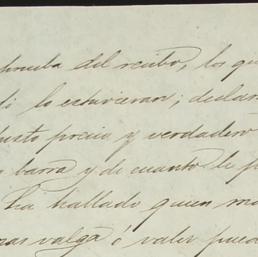 prueba del recibo, los qu
di lo estuvieran; declar
justo precio y verdadero
barra y de cuanto le p
ha hallado quien ma
mas valga ó valer pued